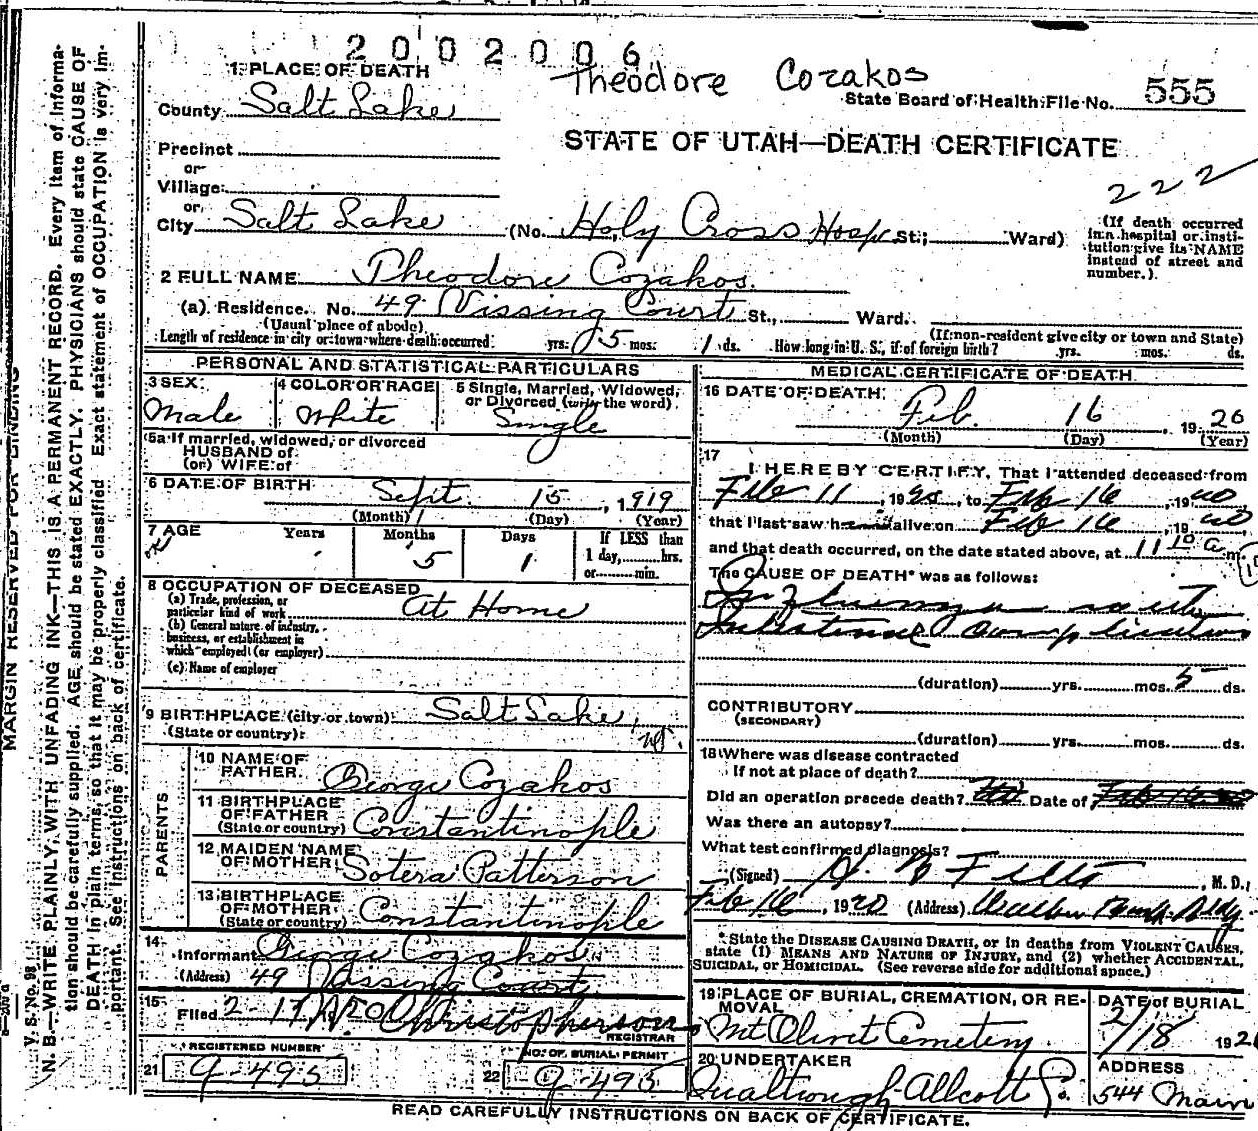 2002006
Theodore Cozakos
1 PLACE OF DEATH
County Salt Lake
State Board of Health File No. 555
STATE OF UTAH—DEATH CERTIFICATE
Precinct
or
Village
or
City Salt Lake (No. Holy Cross Hosp St.; Ward)
222
(If death occurred in a hospital or institution give its NAME instead of street and number.)
2 FULL NAME Theodore Cozakos.
(a) Residence. No. 49 Vissing Court St., Ward.
(Usual place of abode) (If non-resident give city or town and State)
Length of residence in city or town where death occurred yrs. 5 mos. 1 ds. How long in U. S., if of foreign birth? yrs. mos. ds.
PERSONAL AND STATISTICAL PARTICULARS
3 SEX Male
4 COLOR OR RACE White
5 Single, Married, Widowed, or Divorced (write the word) Single
5a If married, widowed, or divorced
HUSBAND of
(or) WIFE of
6 DATE OF BIRTH Sept. 15, 1919
(Month) (Day) (Year)
7 AGE Years Months Days If LESS than
5 1 1 day, hrs.
or min.
8 OCCUPATION OF DECEASED
(a) Trade, profession, or particular kind of work At Home
(b) General nature of industry, business, or establishment in which employed (or employer)
(c) Name of employer
9 BIRTHPLACE (city or town) Salt Lake,
(State or country)
PARENTS
10 NAME OF FATHER George Cozakos
11 BIRTHPLACE OF FATHER (State or country) Constantinople
12 MAIDEN NAME OF MOTHER Sotera Patterson
13 BIRTHPLACE OF MOTHER (State or country) Constantinople
14 Informant George Cozakos
(Address) 49 Vissing Court
15 Filed 2-17 1920 Christopherson
REGISTRAR
REGISTERED NUMBER
21 9-495
NO. OF BURIAL PERMIT
22 9-495
MEDICAL CERTIFICATE OF DEATH
16 DATE OF DEATH Feb. 16, 1920
(Month) (Day) (Year)
17 I HEREBY CERTIFY, That I attended deceased from
Feb 11, 1920, to Feb 16, 1920
that I last saw h alive on Feb 16, 1920
and that death occurred, on the date stated above, at 11 10 a m.
The CAUSE OF DEATH* was as follows:
Influenza acute
Intestinal Complications
(duration) yrs. mos. 5 ds.
CONTRIBUTORY
(SECONDARY)
(duration) yrs. mos. ds.
18 Where was disease contracted
If not at place of death?
Did an operation precede death? Date of
Was there an autopsy?
What test confirmed diagnosis?
(Signed) M. D.
Feb 16, 1920 (Address) Bank Bldg.
*State the DISEASE CAUSING DEATH, or in deaths from VIOLENT CAUSES, state (1) MEANS AND NATURE OF INJURY, and (2) whether ACCIDENTAL, SUICIDAL, or HOMICIDAL. (See reverse side for additional space.)
19 PLACE OF BURIAL, CREMATION, OR REMOVAL Mt Olivet Cemetery
DATE of BURIAL 2/18 192
20 UNDERTAKER
ADDRESS
544 Main
READ CAREFULLY INSTRUCTIONS ON BACK OF CERTIFICATE.
MARGIN RESERVED FOR BINDING
V. S. No. 98
N. B.—WRITE PLAINLY, WITH UNFADING INK—THIS IS A PERMANENT RECORD. Every item of information should be carefully supplied. AGE should be stated EXACTLY. PHYSICIANS should state CAUSE OF DEATH in plain terms, so that it may be properly classified. Exact statement of OCCUPATION is very important. See instructions on back of certificate.